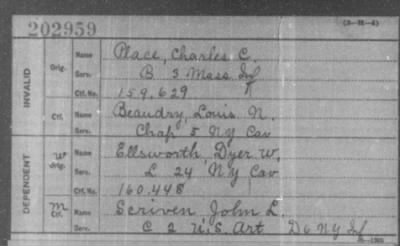 202959
(3-88-6)
INVALID
Orig.
Name Place, Charles C.
Serv. B 3 Mass. Inf
Ctf. No. 159,629
Ctf.
Name Beaudry, Louis N.
Serv. Chap 5 NY Cav
DEPENDENT
W Orig.
Name Ellsworth, Dyer W.
Serv. L 24 NY Cav
Ctf. No. 160.448
M Ctf.
Name Scriven John L.
Serv. C 2 U.S. Art D 6 NY Inf